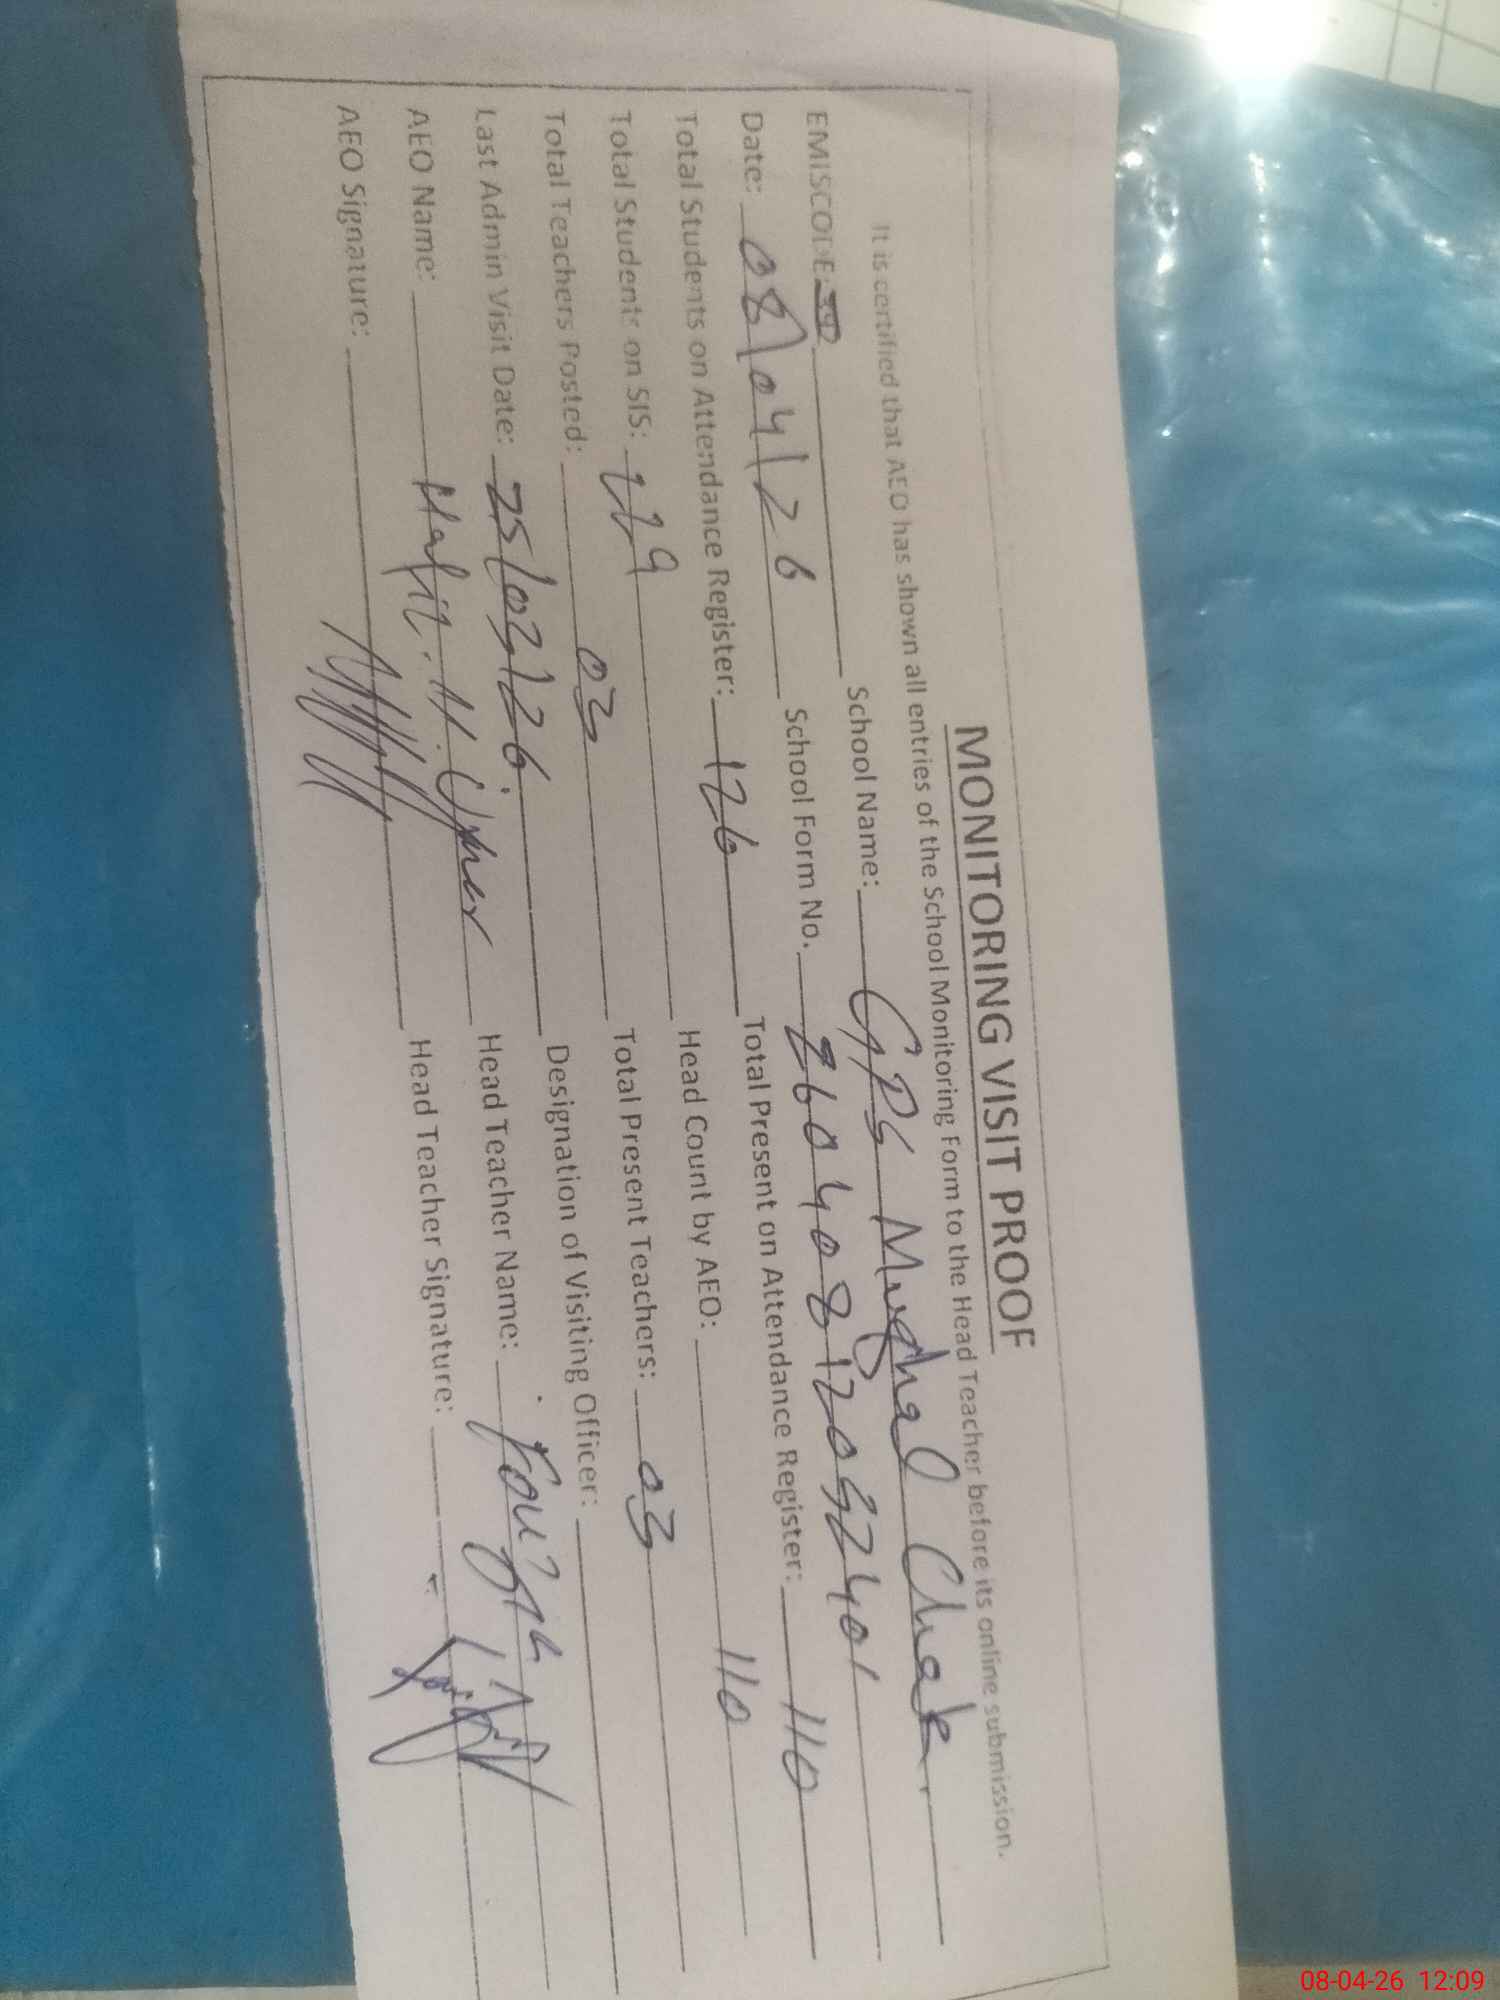 MONITORING VISIT PROOF
It is certified that AEO has shown all entries of the School Monitoring Form to the Head Teacher before its online submission.
EMISCODE: School Name: GPS Mughal Chak
Date: 08/04/26 School Form No. 260408120932401
Total Students on Attendance Register: 126 Total Present on Attendance Register: 110
Total Students on SIS: Head Count by AEO: 110
Total Teachers Posted: 03 Total Present Teachers: 03
Last Admin Visit Date: 25/03/26 Designation of Visiting Officer:
AEO Name: Hafiz M. Umer Head Teacher Name: Fouzia
AEO Signature: Head Teacher Signature:
08-04-26 12:09